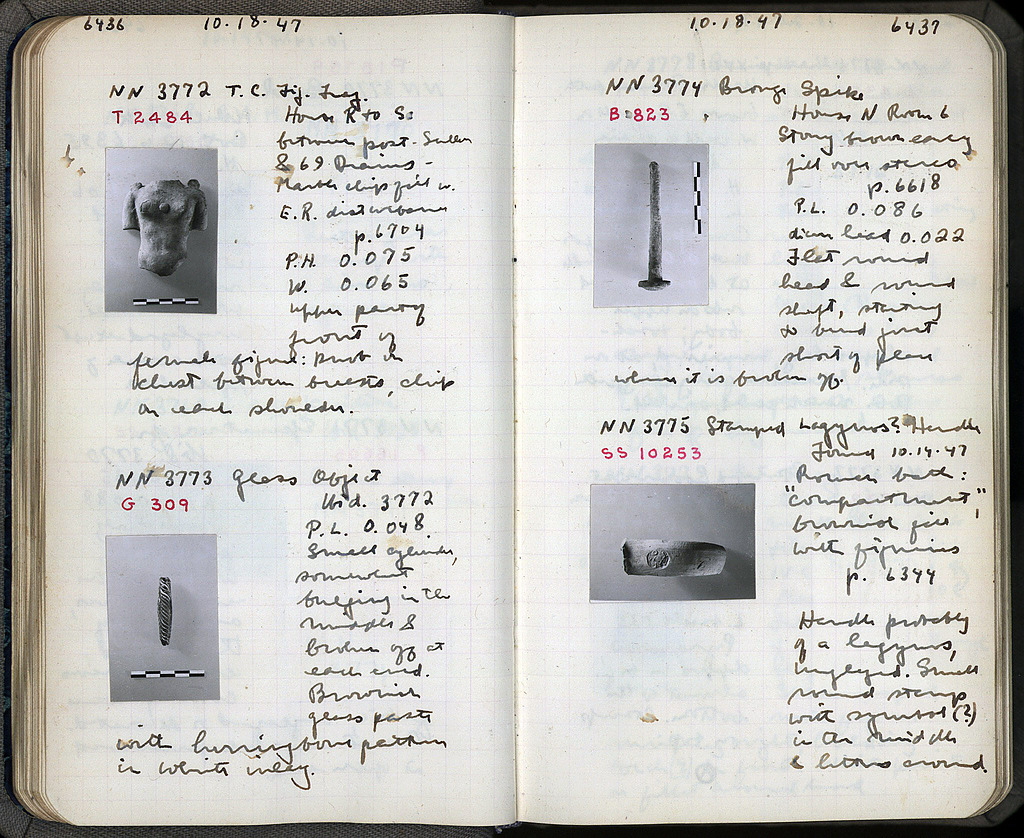 6436 10.18.47
NN 3772 T.C. Fig. Frag.
T 2484
House R to S:
between post-Sullan
& 69 Drains -
Marble chip fill w.
E.R. disturbance
p. 6704
P.H. 0.075
W. 0.065
upper part of
front of
female figure: 
chest between breasts, chip
on each shoulder.
NN 3773 Glass Object
G 309
Ibid. 3772
P.L. 0.048
Small cylinder,
somewhat
bulging in the
middle &
broken off at
each end.
Brownish
glass paste
with herringbone pattern
in white inlay.
10.18.47 6437
NN 3774 Bronze Spike
B 823
House N Room 6
Stony brown earthy
fill over stereo
p. 6618
P.L. 0.086
diam head 0.022
Flat round
head & round
shaft, starting
to bend just
short of place
where it is broken off.
NN 3775 Stamped Lagynos? Handle
SS 10253
Found 10.14.47
Roman bath:
"compartment",
brownish fill
with figurines
p. 6344
Handle probably
of a lagynos,
unglazed. Small
round stamp
with symbol (?)
in the middle
& letters around.